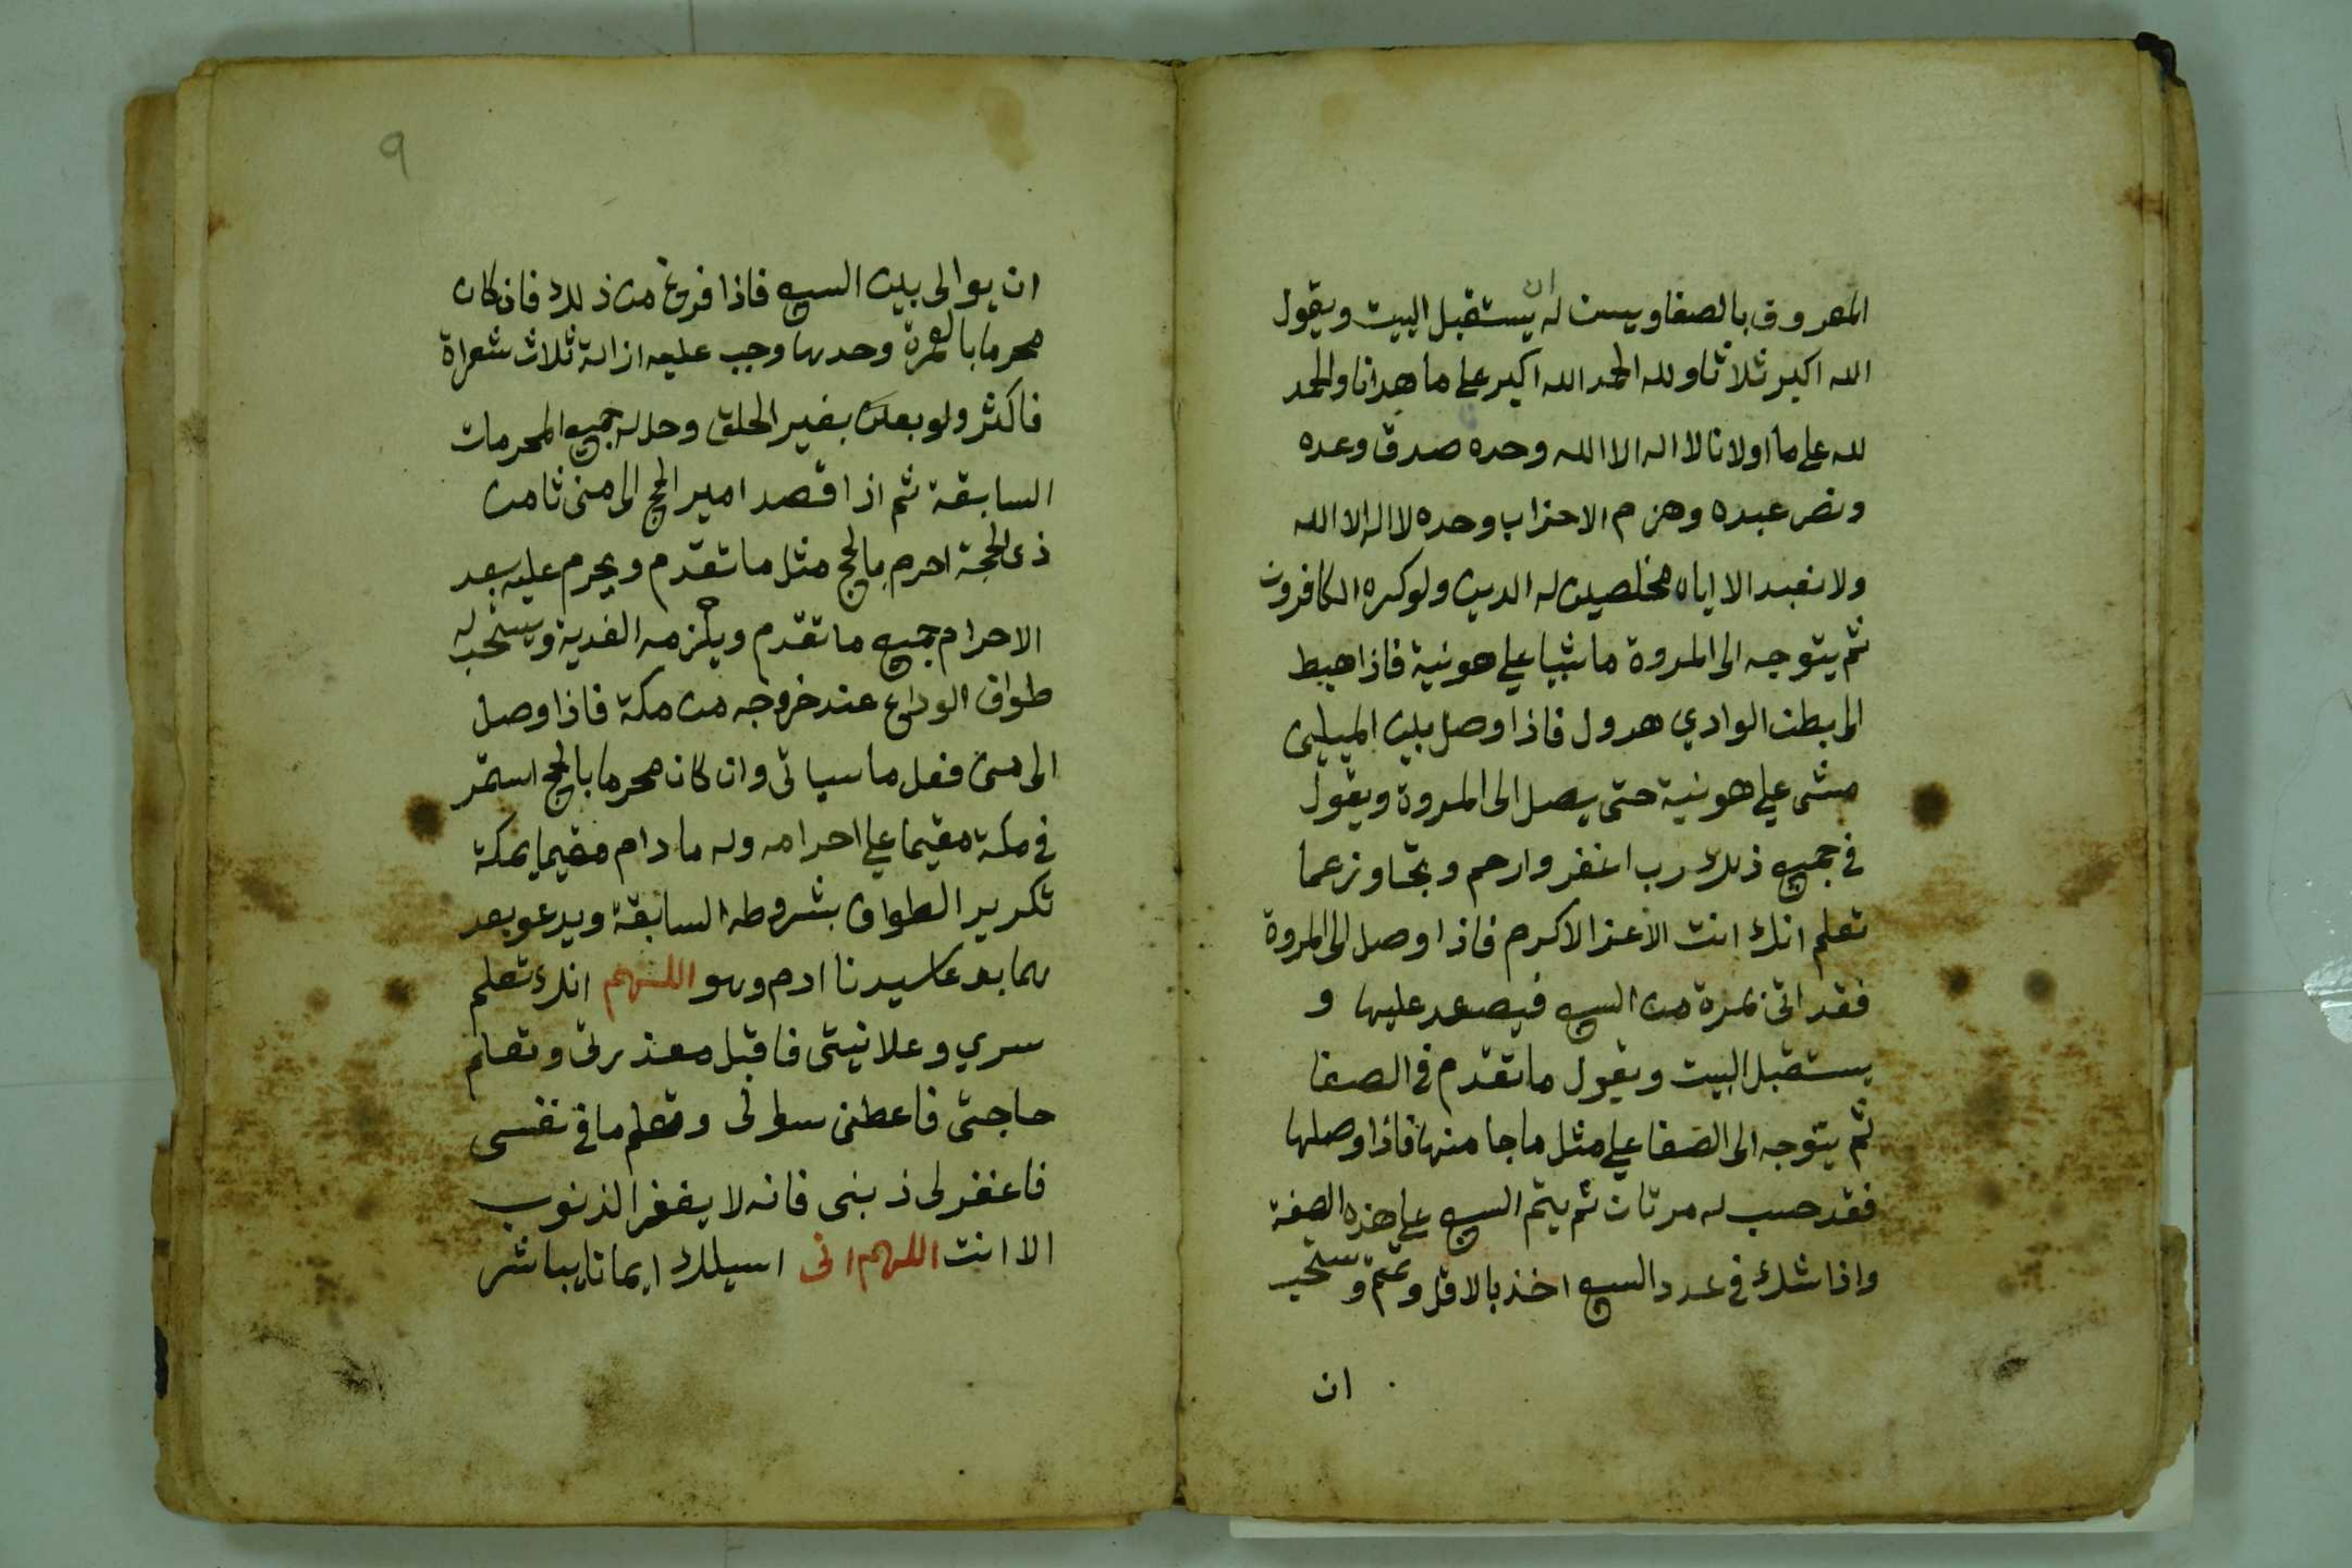 المعروف بالصفا ويسن له ان يستقبل البيت ويقول
الله اكبر ثلاثا ولله الحمد الله اكبر على ما هدانا والحمد
لله على ما اولانا لا اله الا الله وحده صدق وعده
ونصر عبده وهزم الاحزاب وحده لا اله الا الله
ولا نعبد الا اياه مخلصين له الدين ولو كره الكافرون
ثم يتوجه الى المروة ماشيا على هونية فاذا هبط
الى بطن الوادي هرول فاذا وصل بين الميلين
مشى على هونية حتى يصل الى المروة ويقول
في جميع ذلك رب اغفر وارحم وتجاوز عما
تعلم انك انت الاعز الاكرم فاذا وصل الى المروة
فقد اتى بمرة من السعي فيصعد عليها و
يستقبل البيت ويقول ما تقدم في الصفا
ثم يتوجه الى الصفا على مثل ما جا منها فاذا وصلها
فقد حسب له مرتان ثم يتم السعي على هذه الصفة
واذا شك في عدد السعي اخذ بالاقل وتمم ويستحب
ان
٩
ان يوالى بين السعي فاذا فرغ من ذلك فان كان
محرما بالعمرة وحدها وجب عليه ازالة ثلاث شعراة
فاكثر ولو بعلن بغير الحلق وحل له جميع المحرمات
السابقة ثم اذا قصد امير الحج الى منى ثامن
ذى الحجة احرم بالحج مثل ما تقدم ويحرم عليه بعد
الاحرام جميع ما تقدم ويلزمه الفدية ويستحب له
طواف الوداع عند خروجه من مكة فاذا وصل
الى منى فعل ما سياتى وان كان محرما بالحج استمر
في مكة مقيما على احرامه وله ما دام مقيما بمكة
تكرير الطواف بشروطه السابقة ويدعو بعد
هما بدعا سيدنا ادم وهو اللهم انك تعلم
سري وعلانيتى فاقبل معذرتى وتعلم
حاجتى فاعطنى سولى وتعلم ما في نفسى
فاغفر لى ذنبى فانه لا يغفر الذنوب
الا انت اللهم انى اسيلك ايمانا يباشر